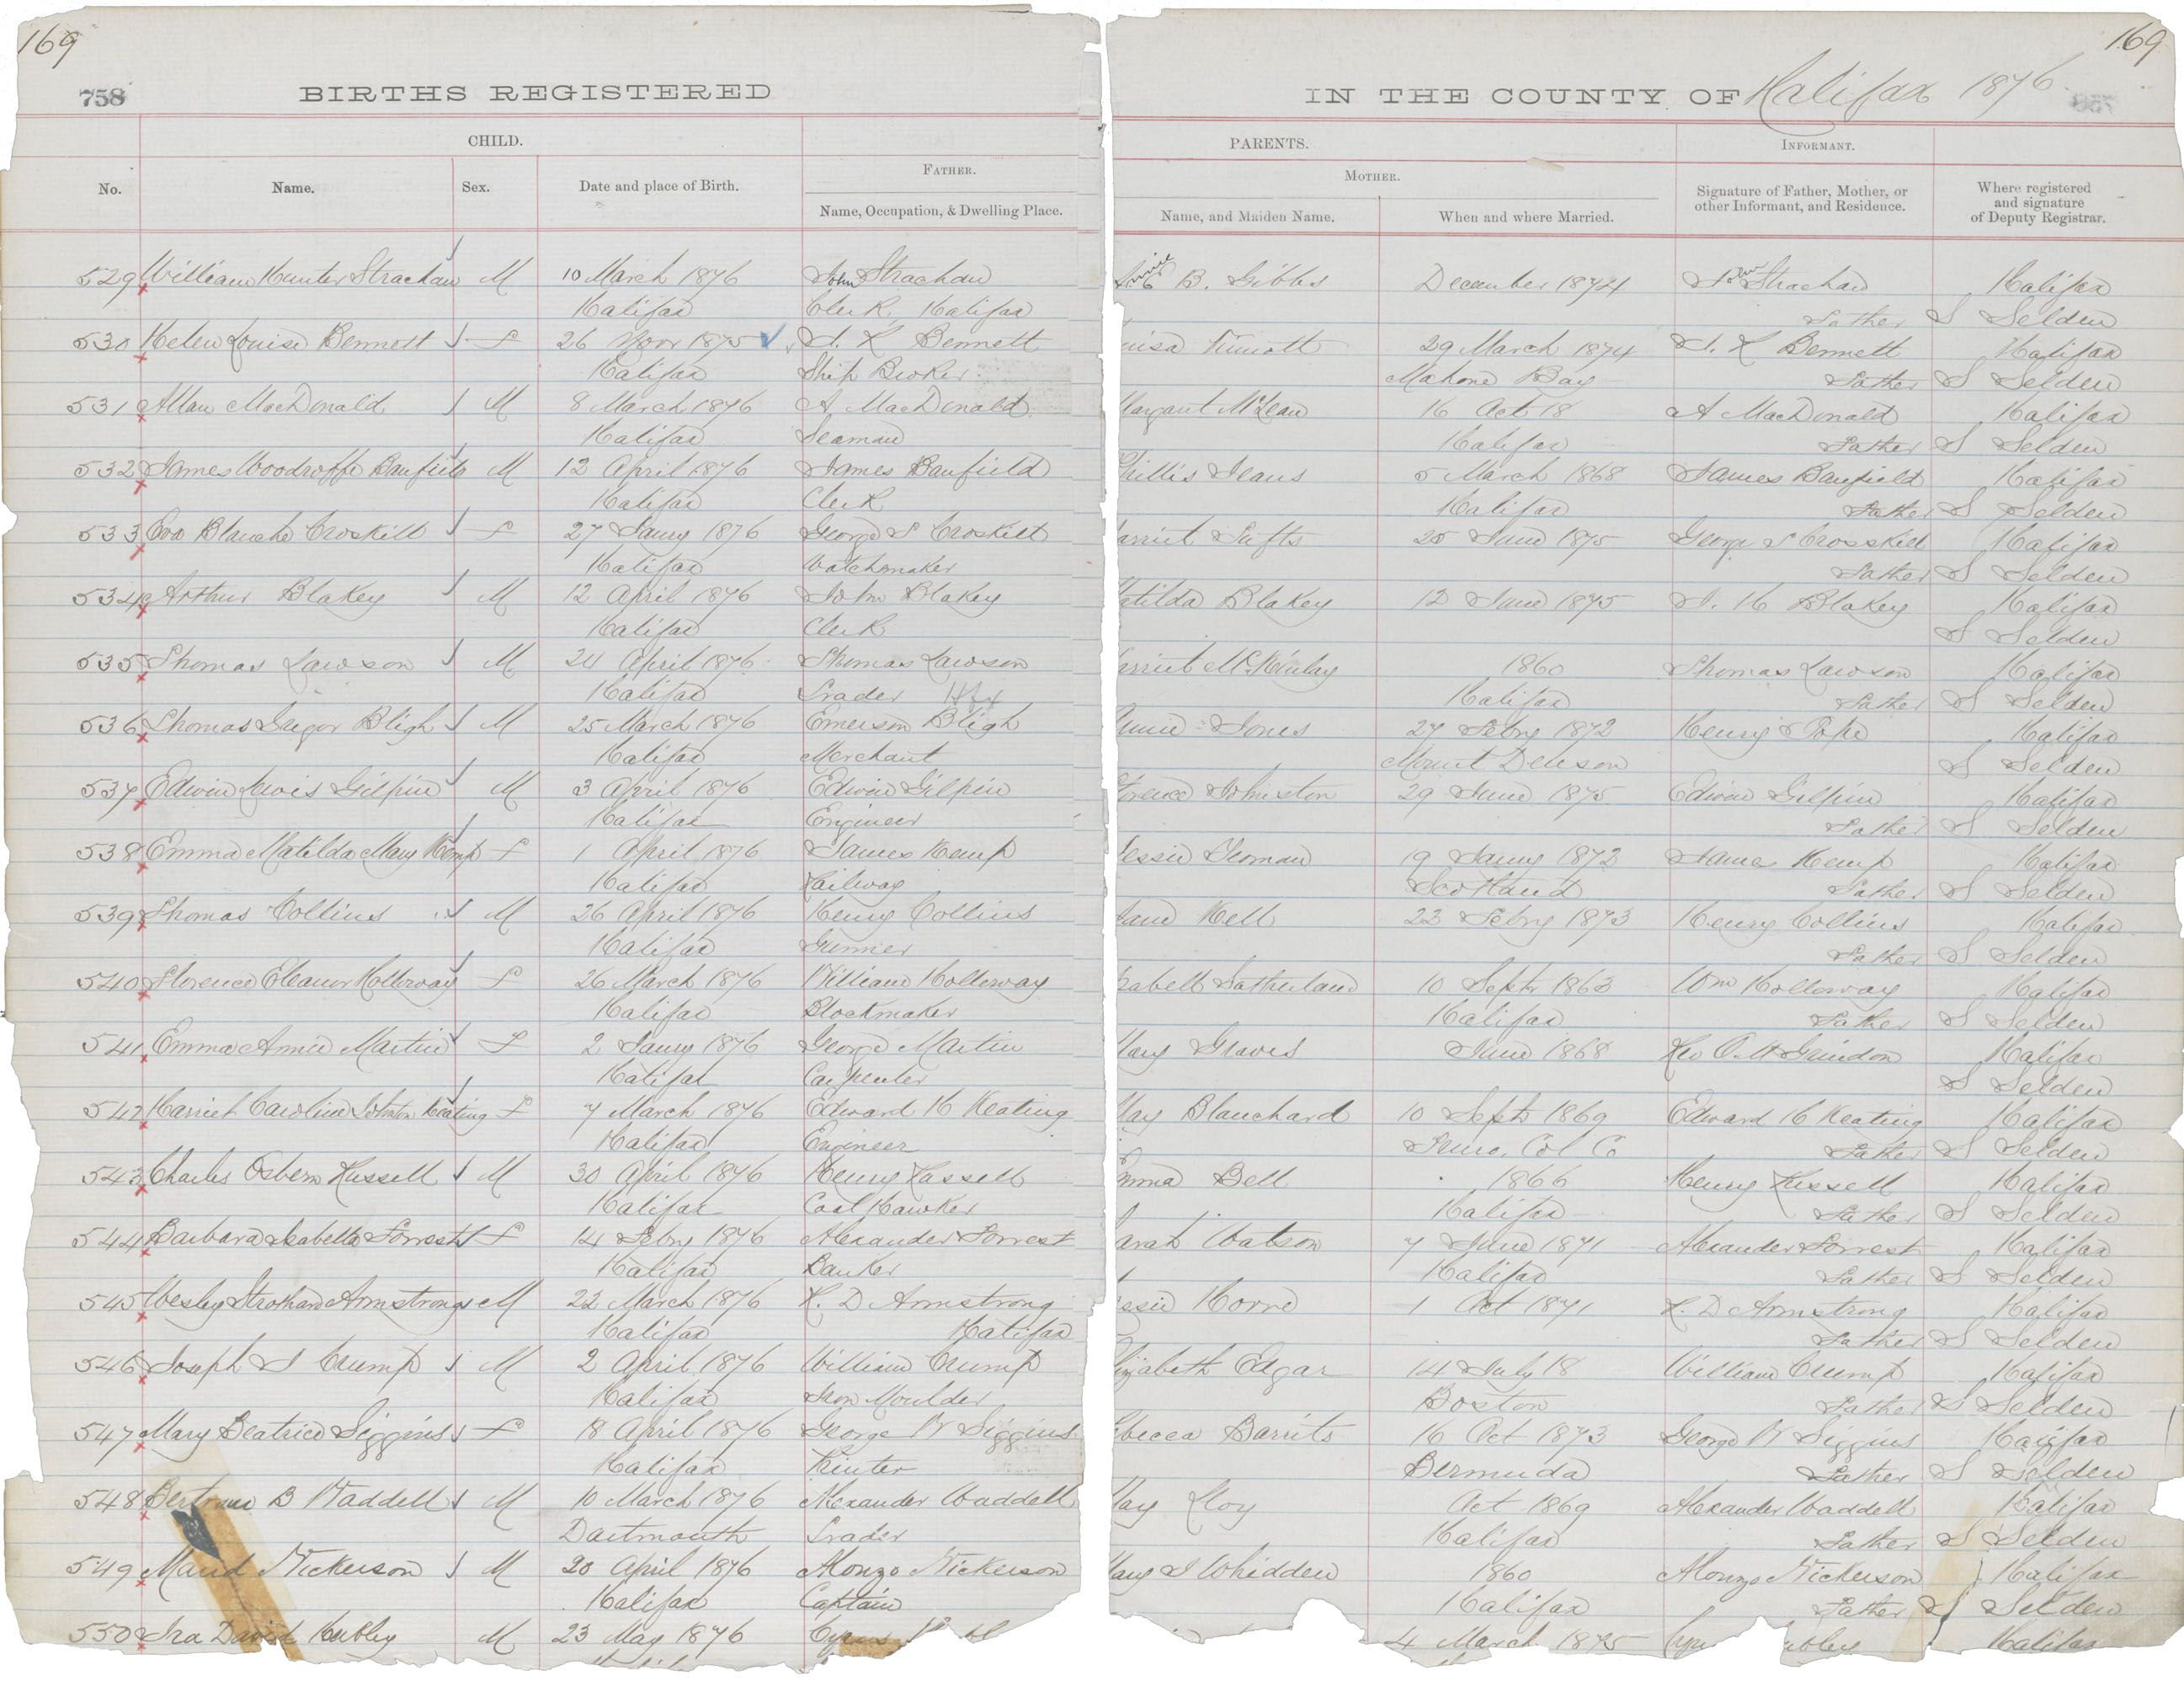 169 169
758 BIRTHS REGISTERED IN THE COUNTY OF Halifax 1876
CHILD. PARENTS. INFORMANT.
FATHER. MOTHER.
No. Name. Sex. Date and place of Birth. Name, Occupation, & Dwelling Place. Name, and Maiden Name. When and where Married. Signature of Father, Mother, or other Informant, and Residence. Where registered and signature of Deputy Registrar.
529 William Hunter Strachan M 10 March 1876 John Strachan Annie B. Gibbs December 1874 John Strachan Halifax
Halifax Clerk Halifax Father S Selden
530 Helen Louise Bennett F 26 Novr 1875 J. R Bennett 29 March 1874 J. R Bennett Halifax
Halifax Ship Broker Mahone Bay Father S Selden
531 Allan MacDonald M 8 March 1876 A MacDonald Margaret McLean 16 Oct 18 A MacDonald Halifax
Halifax Seaman Halifax Father S Selden
532 James Woodroffe Banfield M 12 April 1876 James Banfield Phillis Jeans 5 March 1868 James Banfield Halifax
Halifax Clerk Halifax Father S Selden
533 Eva Blanche Croskill F 27 Jany 1876 George S Croskill Harriet Tufts 25 June 1875 George S Crosskill Halifax
Halifax Watchmaker Father S Selden
534 Arthur Blakey M 12 April 1876 John Blakey Matilda Blakey 12 June 1875 J. H Blakey Halifax
Halifax Clerk S Selden
535 Thomas Lawson M 24 April 1876 Thomas Lawson McKinlay 1860 Thomas Lawson Halifax
Halifax Trader Hfx Halifax Father S Selden
536 Thomas Gregor Bligh M 25 March 1876 Emerson Bligh Annie Jones 27 Febry 1872 Henry Pope Halifax
Halifax Merchant Mount Denson S Selden
537 Edwin Lewis Gilpin M 3 April 1876 Edwin Gilpin Florence Johnston 29 June 1875 Edwin Gilpin Halifax
Halifax Engineer Father S Selden
538 Emma Matilda Mary Kemp F 1 April 1876 James Kemp Jessie Yeoman 19 Jany 1872 James Kemp Halifax
Halifax Railway Scotland Father S Selden
539 Thomas Collins M 26 April 1876 Henry Collins Kell 22 Febry 1873 Henry Collins Halifax
Halifax Gunner Father S Selden
540 Florence Eleanor Holloway F 26 March 1876 William Holloway Isabell Sutherland 10 Septr 1863 Wm Holloway Halifax
Halifax Blockmaker Halifax Father S Selden
541 Emma Annie Martin F 2 Jany 1876 George Martin Mary Graves June 1868 Rev O. M Grindon Halifax
Halifax Carpenter S Selden
542 Harriet Caroline Johnston Keating F 7 March 1876 Edward H Keating May Blanchard 10 Septr 1869 Edward H Keating Halifax
Halifax Engineer Truro. Col Co Father S Selden
543 Charles Osborn Russell M 30 April 1876 Henry Russell Emma Bell 1866 Henry Russell Halifax
Halifax Coal Hawker Halifax Father S Selden
544 Barbara Isabella Forrest F 14 Febry 1876 Alexander Forrest Sarah Watson 7 June 1871 Alexander Forrest Halifax
Halifax Banker Halifax Father S Selden
545 Wesley Strothard Armstrong M 22 March 1876 R. D Armstrong Horne 1 Oct 1871 R. D Armstrong Halifax
Halifax Halifax Father S Selden
546 Joseph S Crump M 2 April 1876 William Crump Elizabeth Edgar 14 July 18 William Crump Halifax
Halifax Iron Moulder Boston Father S Selden
547 Mary Beatrice Siggins F 18 April 1876 George W Siggins Rebecca Barrits 16 Oct 1873 George W Siggins Halifax
Halifax Printer Bermuda Father S Selden
548 Bertram B Waddell M 10 March 1876 Alexander Waddell May Lloy Oct 1869 Alexander Waddell Halifax
Dartmouth Trader Halifax Father S Selden
549 Nickerson M 20 April 1876 Alonzo Nickerson Mary J Whidden 1860 Alonzo Nickerson Halifax
Halifax Captain Halifax Father S Selden
550 Ira David Hubley M 23 May 1876 Cyrus 4 March 1875 Halifax